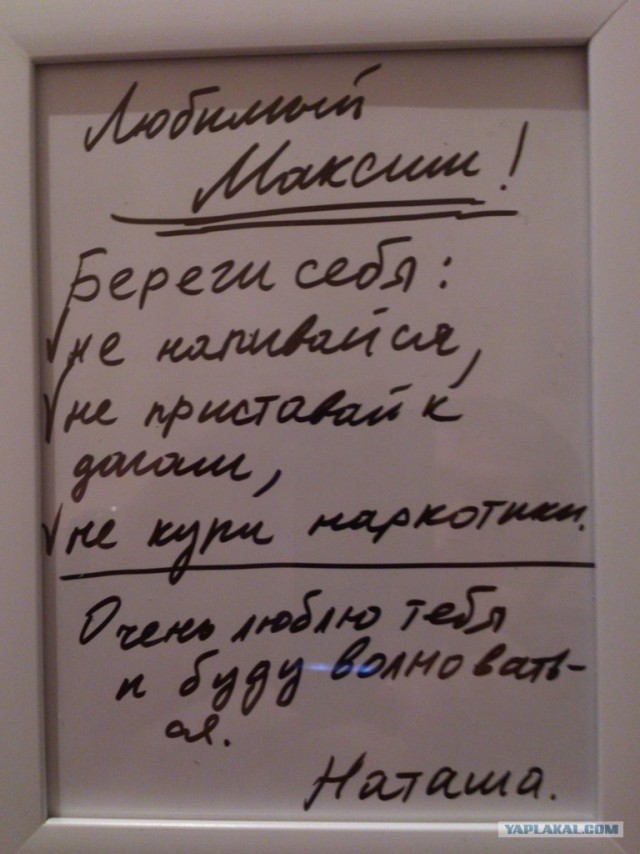 Любимый
Максим!
Береги себя:
не напивайся,
не приставай к
дагам,
не кури наркотики.
Очень люблю тебя
и буду волновать-
ся.
Наташа.
YAPLAKAL.COM